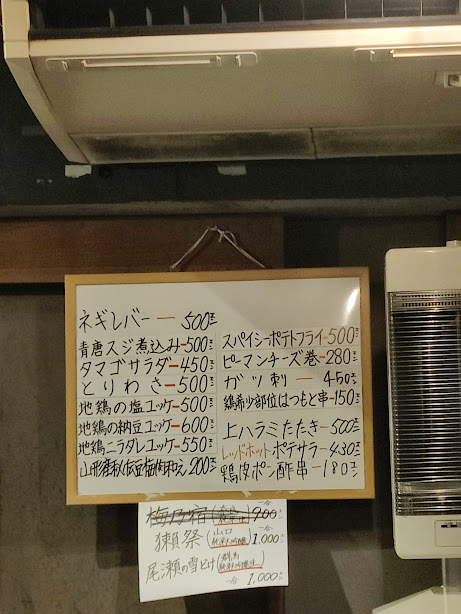 ネギレバー ー 500円
青唐スジ煮込みー500円
タマゴサラダー450円
とりわさ ー 500円
地鶏の塩ユッケー500円
地鶏の納豆ユッケー600円
地鶏ニラダレユッケー550円
山形秘伝豆梅肉和え 200円
スパイシーポテトフライー500円
ピーマンチーズ巻ー280円
ガツ刺 ー 450円
鶏希少部位はつもと串ー150円
上ハラミたたきー500円
レッドホットポテサラー430円
鶏皮ポン酢串ー180円
梅乃宿 一合 900円
獺祭 (山口 純米大吟醸) 一合 1,000円
尾瀬の雪どけ (群馬 純米大吟醸) 一合 1,000円